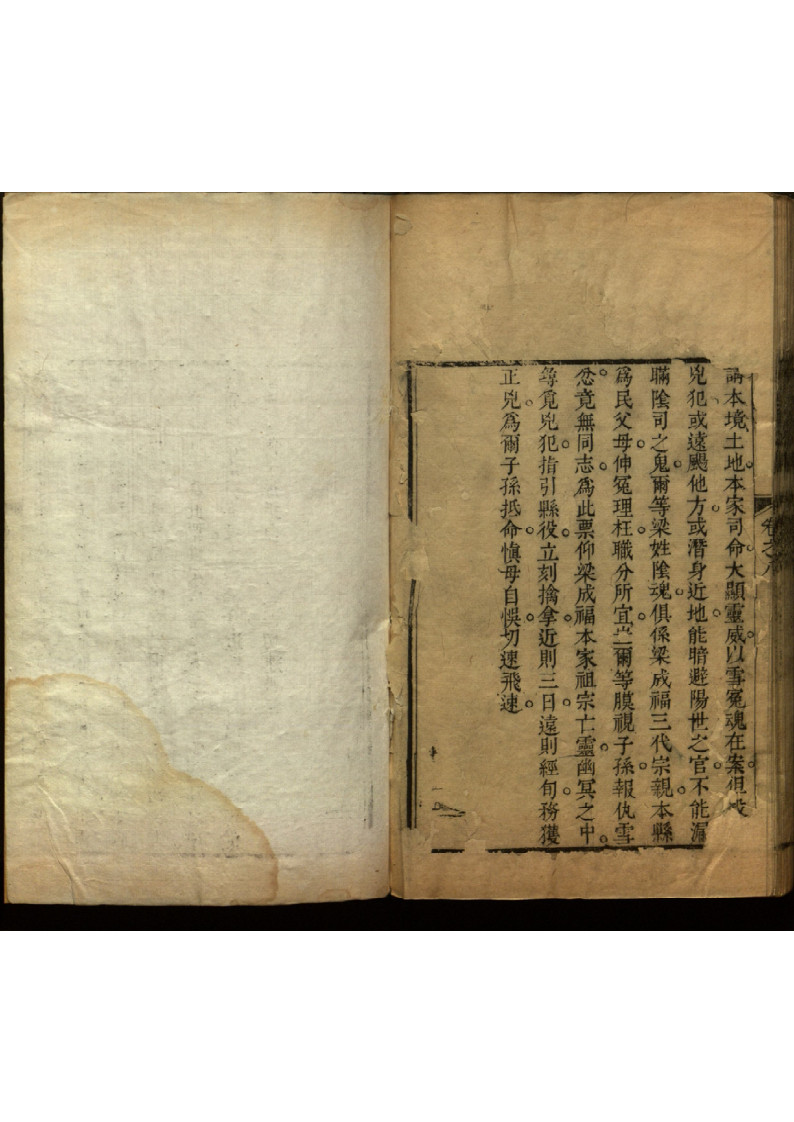 卷之八
請本境土地本家司命大顯靈威以雪冤魂在案但殺
兇犯或遠颺他方或潛身近地能暗避陽世之官不能漏
瞞陰司之鬼爾等梁姓陰魂俱係梁成福三代宗親本縣
爲民父母伸冤理枉職分所宜豈爾等膜視子孫報仇雪
忿竟無同志爲此票仰梁成福本家祖宗亡靈幽冥之中
尋覓兇犯指引縣役立刻擒拿近則三日遠則經旬務獲
正兇爲爾子孫抵命愼毋自悞切速飛速